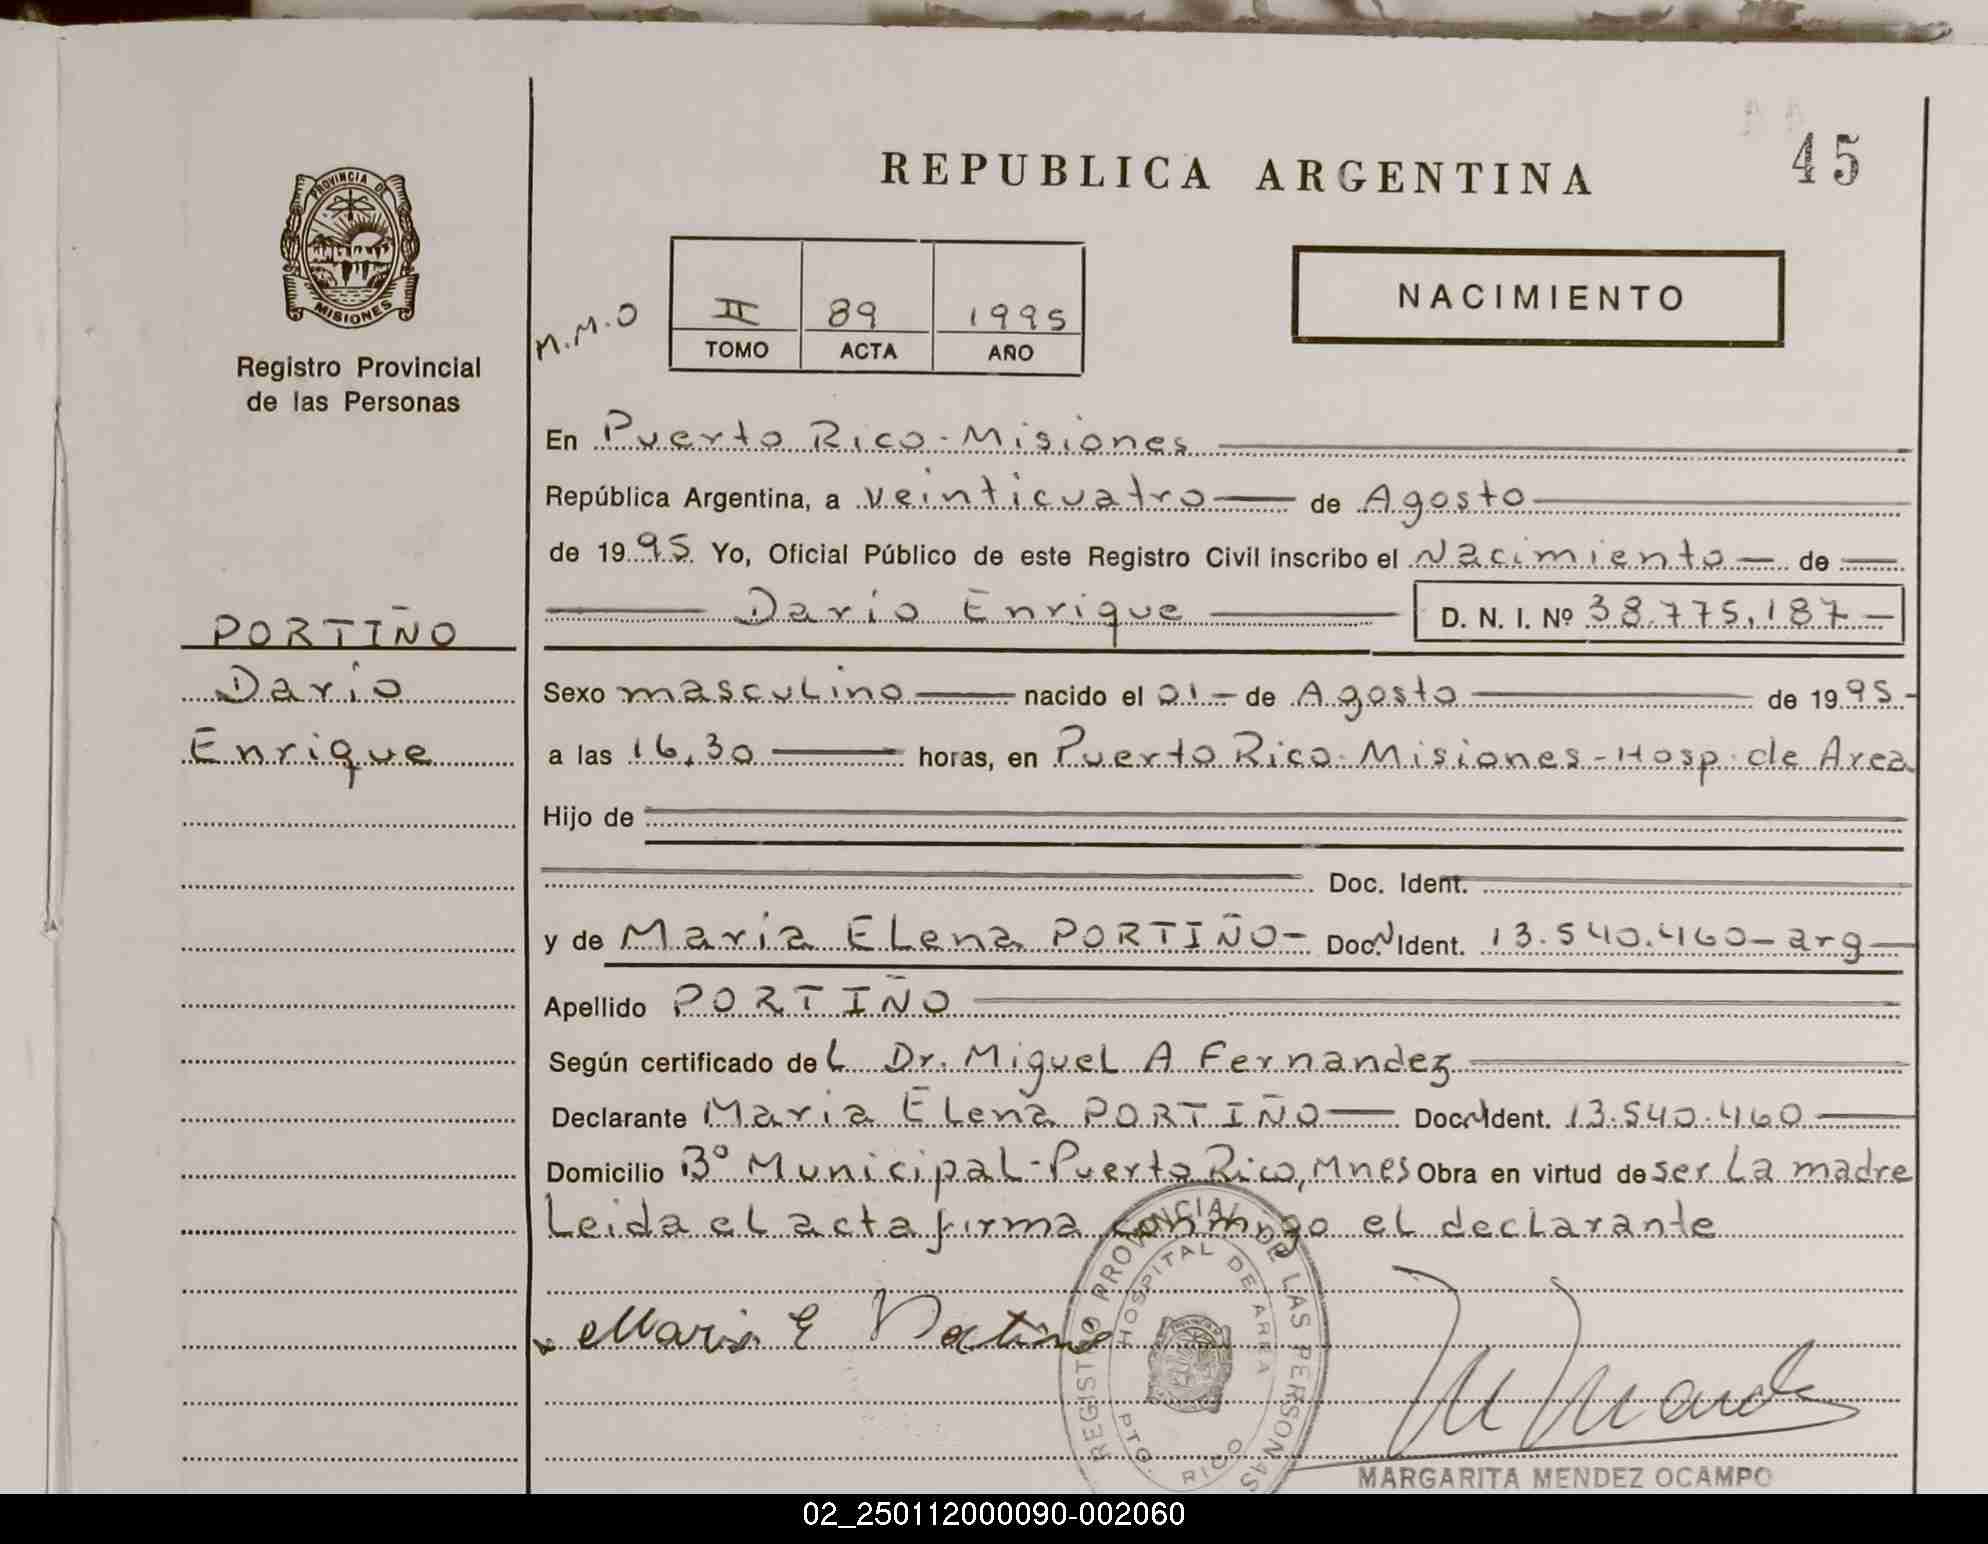 45
REPUBLICA ARGENTINA
PROVINCIA DE
MISIONES
Registro Provincial
de las Personas
M.M.O
II 89 1995
TOMO ACTA AÑO
NACIMIENTO
En Puerto Rico - Misiones
República Argentina, a veinticuatro de Agosto
de 1995 Yo, Oficial Público de este Registro Civil inscribo el Nacimiento de
Dario Enrique D. N. I. Nº 38.775.187
PORTIÑO
Dario
Enrique
Sexo masculino nacido el 01 - de Agosto de 1995 -
a las 16,30 horas, en Puerto Rico - Misiones - Hosp. de Area
Hijo de
Doc. Ident.
y de Maria ELena PORTIÑO - Doc. N Ident. 13.540.460 - arg
Apellido PORTIÑO
Según certificado deL Dr. MigueL A Fernandez
Declarante Maria ELena PORTIÑO Doc. N Ident. 13.540.460
Domicilio Bº MunicipaL - Puerto Rico, Mnes Obra en virtud de ser La madre
Leida eL acta firma conmigo eL decLarante
Maria E Portiño
REGISTRO PROVINCIAL DE LAS PERSONAS
HOSPITAL DE AREA
PTO. RICO
MARGARITA MENDEZ OCAMPO
02_250112000090-002060